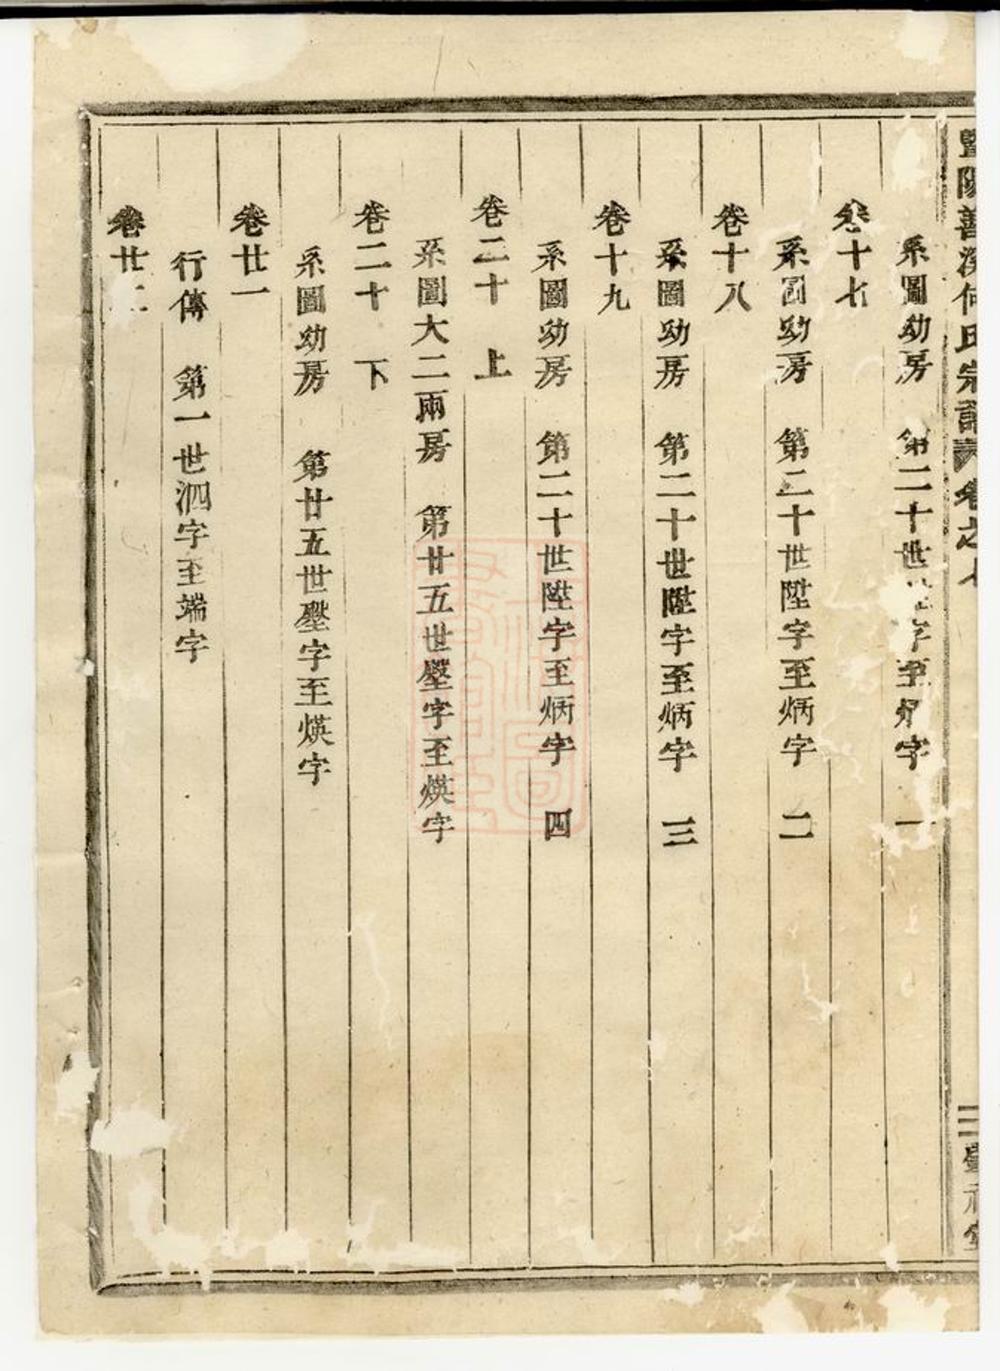 暨陽善溪何氏宗譜 卷之
系圖幼房 第二十世陞字至炳字 一
卷十七
系圖幼房 第二十世陞字至炳字 二
卷十八
系圖幼房 第二十世陞字至炳字 三
卷十九
系圖幼房 第二十世陞字至炳字 四
卷二十 上
系圖大二兩房 第廿五世壂字至煐字
卷二十 下
系圖幼房 第廿五世壂字至煐字
卷廿一
行傳 第一世泗字至端字
卷廿二